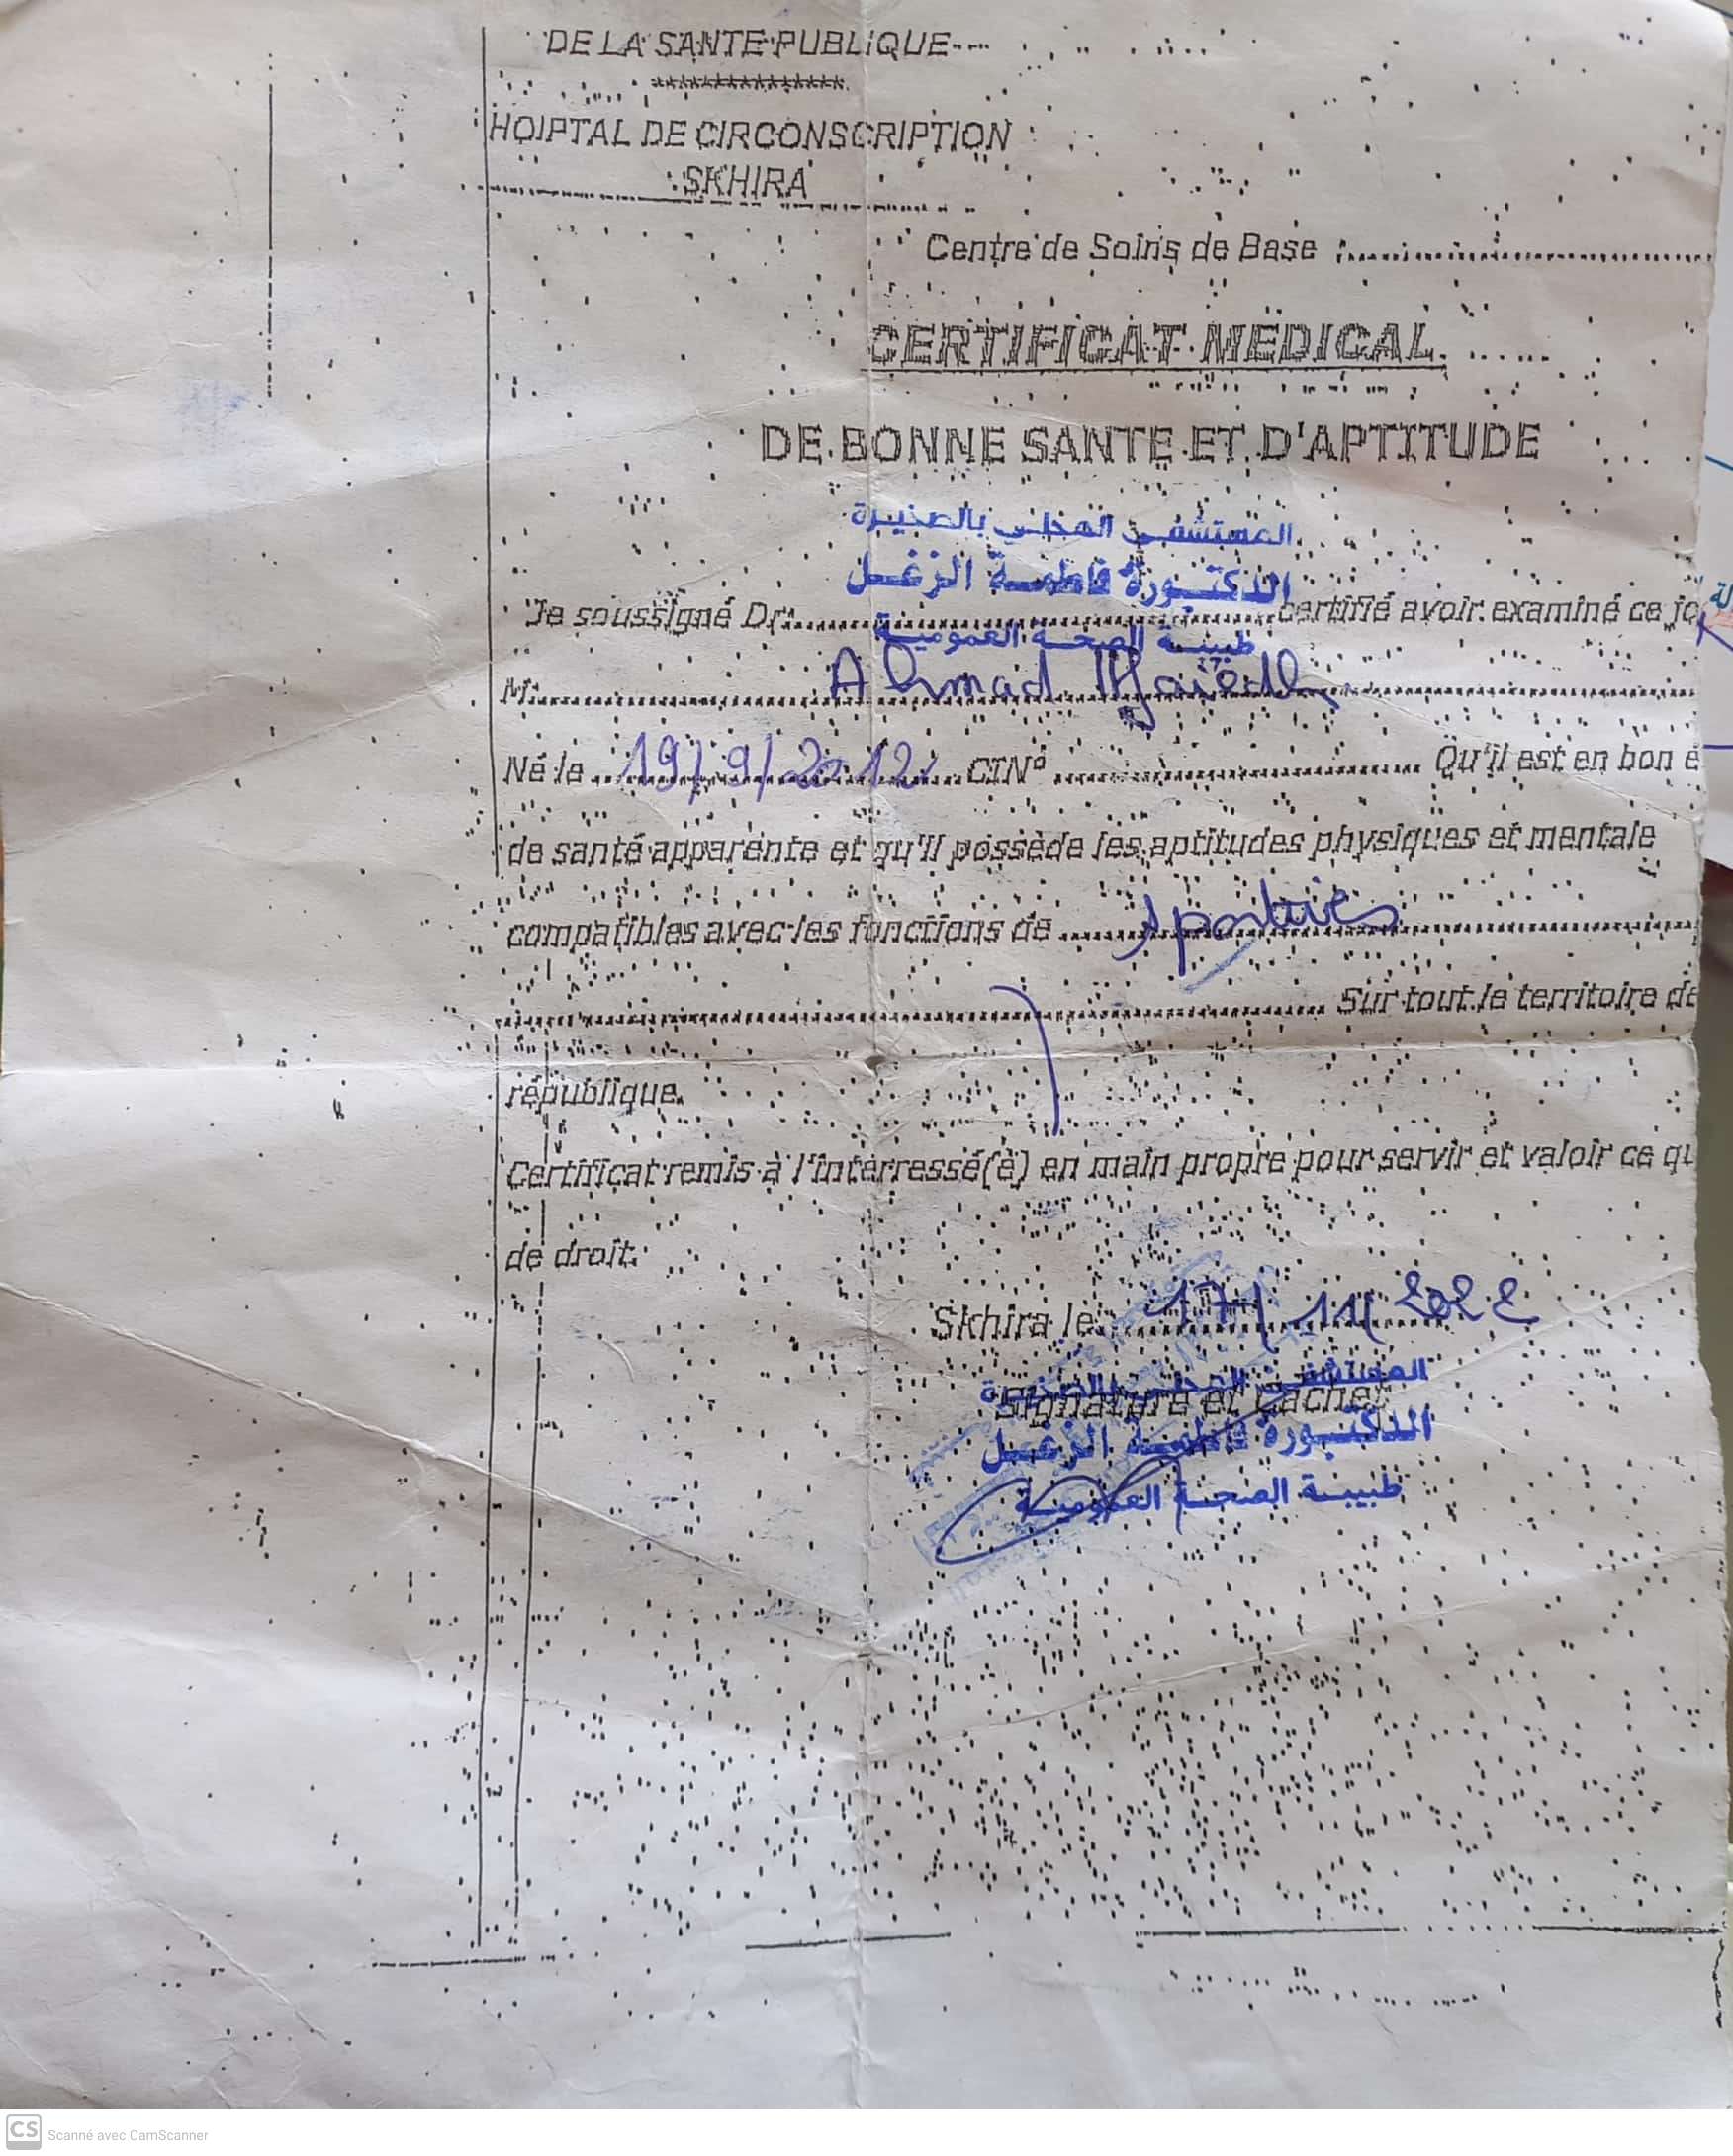 DE LA SANTE PUBLIQUE
***************
HOIPTAL DE CIRCONSCRIPTION
SKHIRA
Centre de Soins de Base
CERTIFICAT MEDICAL
DE BONNE SANTE ET D'APTITUDE
المستشفى المحلي بالصخيرة
الدكتورة فاطمة الزغل
Je soussigné Dr. certifié avoir examiné ce jo
طبيبة الصحة العمومية
M. Ahmad
Né le 19/9/2012 CIN° Qu'il est en bon é
de santé apparente et qu'il possède les aptitudes physiques et mentale
compatibles avec les fonctions de sportives
Sur tout le territoire de
république.
Certificat remis à l'interressé(è) en main propre pour servir et valoir ce qu
de droit.
Skhira le 17/11/2022
المستشفى المحلي بالصخيرة
Signature et Cachet
الدكتورة فاطمة الزغل
طبيبة الصحة العمومية
CS Scanné avec CamScanner